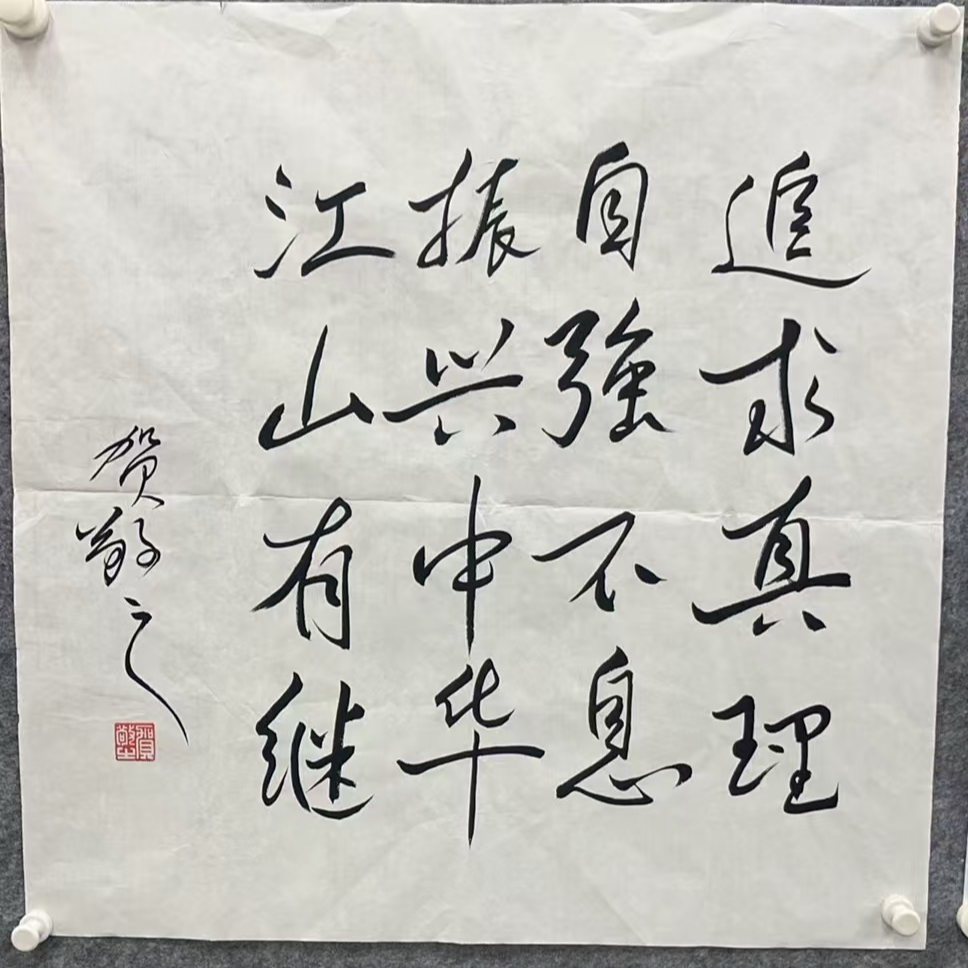 追求真理
自强不息
振兴中华
江山有继
贺敬之
贺敬之